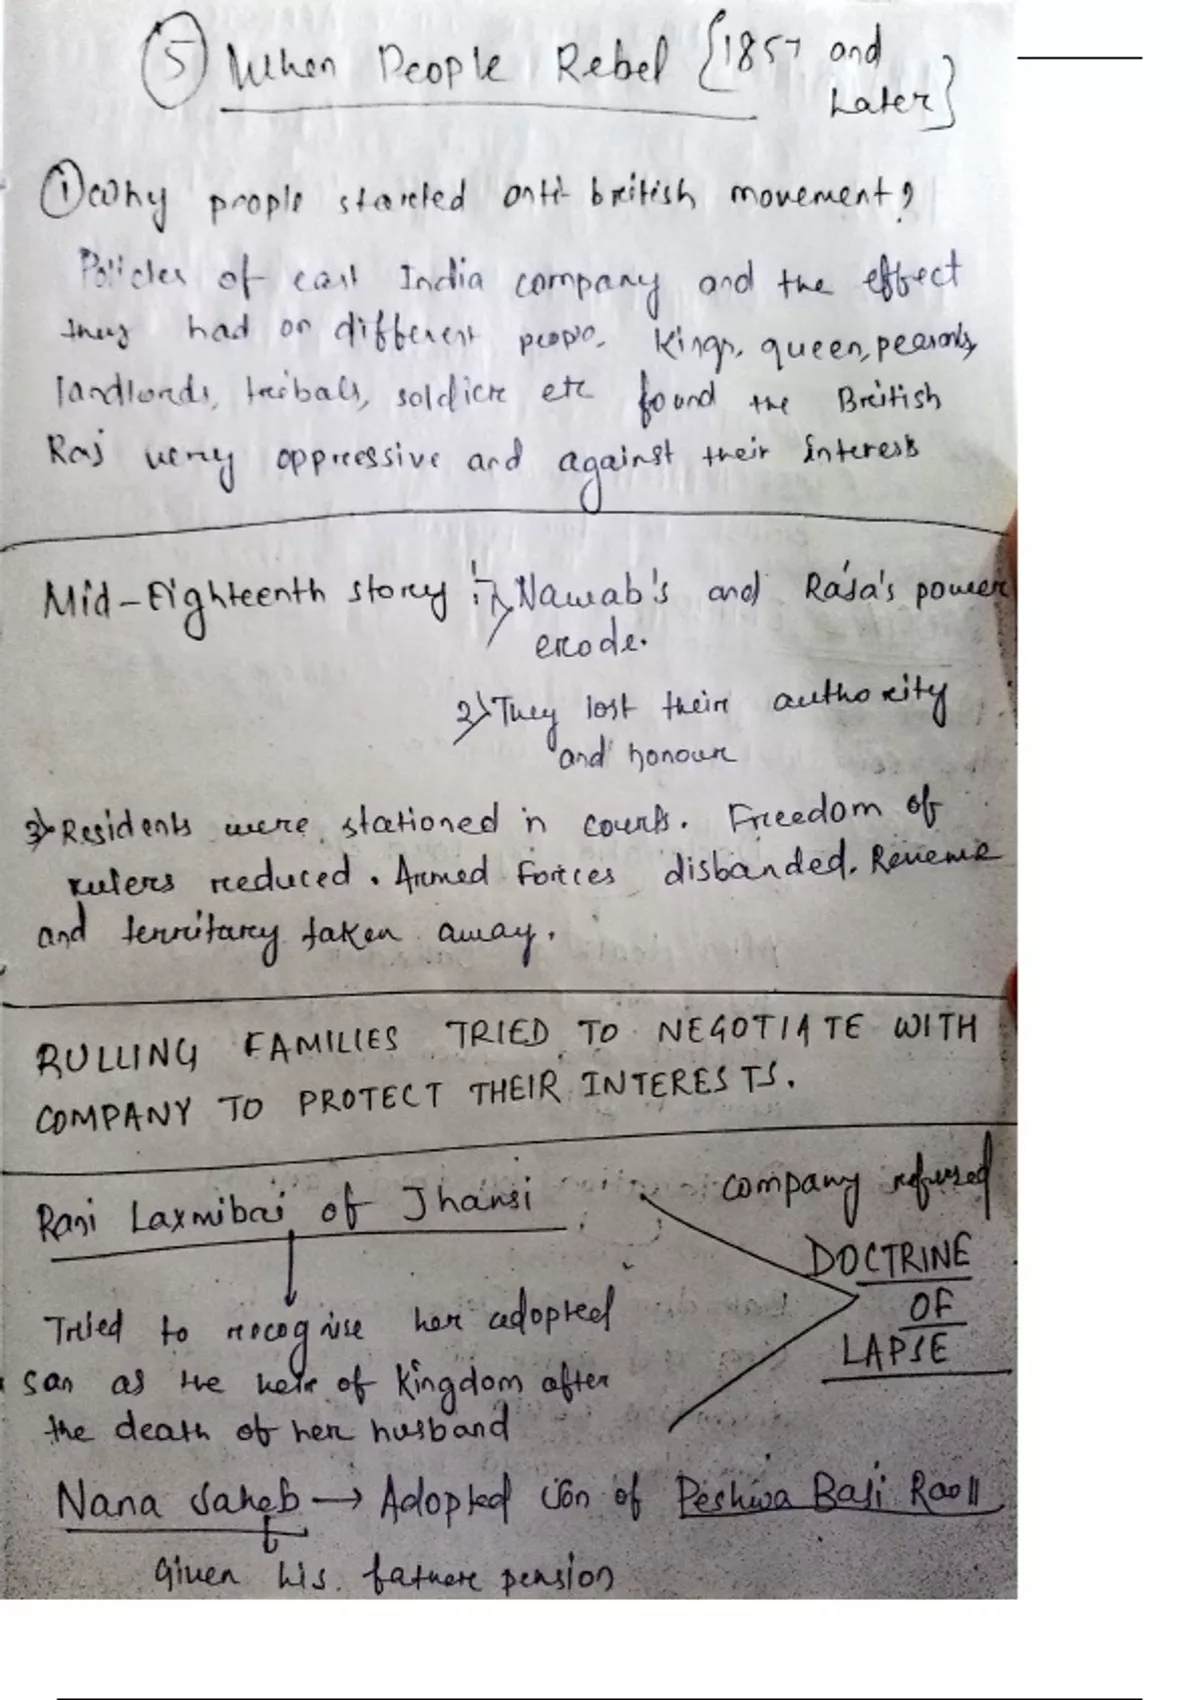 5 When People Rebel {1857 and
Later}
1 Why people started anti-british movement?
Policies of east India company and the effect
they had on different people. Kings, queen, peasants,
landlords, tribals, soldier etc found the British
Raj very oppressive and against their interests
Mid-Eighteenth story : 1) Nawab's and Raja's power
erode.
2) They lost their authority
and honour
3) Residents were stationed in courts. Freedom of
rulers reduced. Armed Forces disbanded. Revenue
and territary taken away.
RULLING FAMILIES TRIED TO NEGOTIATE WITH
COMPANY TO PROTECT THEIR INTERESTS.
Rani Laxmibai of Jhansi
company refused
DOCTRINE
OF
LAPSE
Tried to recognise her adopted
son as the heir of Kingdom after
the death of her husband
Nana Saheb → Adopted son of Peshwa Baji Rao II
Given his father pension